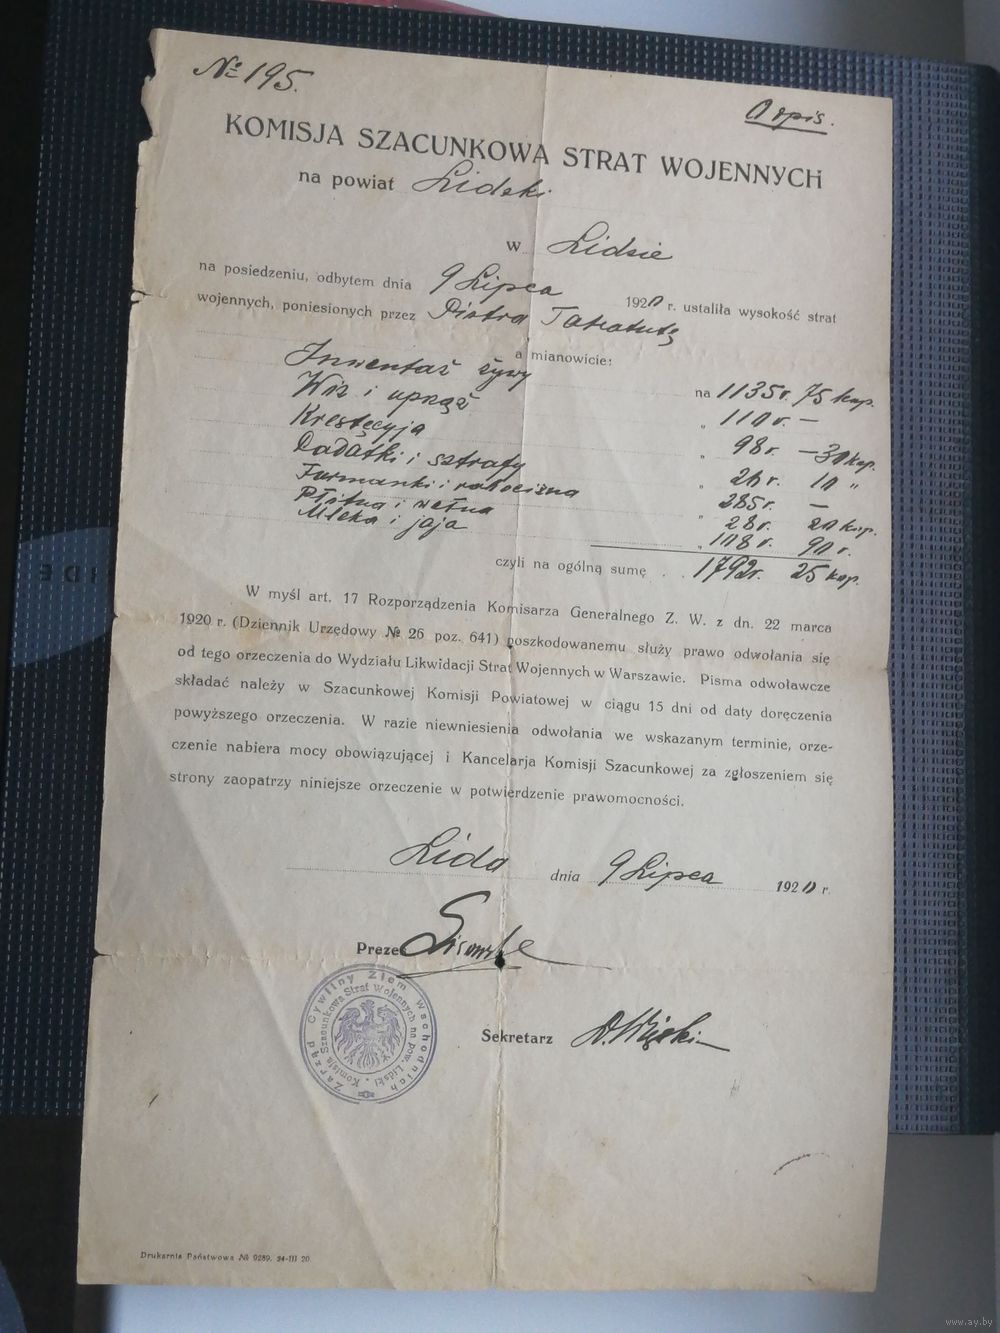 № 195.
Odpis.
KOMISJA SZACUNKOWA STRAT WOJENNYCH
na powiat Lidski
w Lidzie
na posiedzeniu, odbytem dnia 9 Lipca 1920 r. ustaliła wysokość strat
wojennych, poniesionych przez Piotra
a mianowicie:
Inwentaż żywy na 1135 r. 75 kop.
Wóz i uprząż „ 110 r. —
„ 98 r. — 30 kop.
Dodatki i sztrafy „ 26 r. 10 „
Furmanki i robocizna 285 r. —
Płótna i wełna „ 28 r. 20 kop.
Mleka i jaja „ 108 r. 90 r.
czyli na ogólną sumę . . 1792 r. 25 kop.
W myśl art. 17 Rozporządzenia Komisarza Generalnego Z. W. z dn. 22 marca
1920 r. (Dziennik Urzędowy № 26 poz. 641) poszkodowanemu służy prawo odwołania się
od tego orzeczenia do Wydziału Likwidacji Strat Wojennych w Warszawie. Pisma odwoławcze
składać należy w Szacunkowej Komisji Powiatowej w ciągu 15 dni od daty doręczenia
powyższego orzeczenia. W razie niewniesienia odwołania we wskazanym terminie, orze-
czenie nabiera mocy obowiązującej i Kancelarja Komisji Szacunkowej za zgłoszeniem się
strony zaopatrzy niniejsze orzeczenie w potwierdzenie prawomocności.
Lida dnia 9 Lipca 1920 r.
Prezes
Zarząd Cywilny Ziem Wschodnich
Komisja Szacunkowa Strat Wojennych na pow. Lidski
Sekretarz
Drukarnia Państwowa № 9289. 24-III 20.
www.ay.by